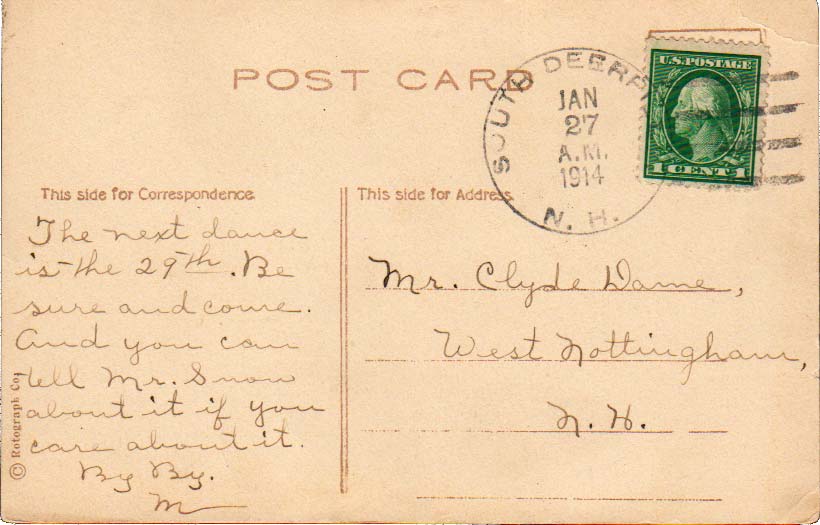 POST CARD
U.S. POSTAGE
1 CENT 1
SOUTH DEERF
JAN
27
A.M.
1914
N. H.
This side for Correspondence.
The next dance
is the 29th. Be
sure and come.
And you can
tell Mr. Snow
about it if you
care about it.
By By.
M
This side for Address
Mr. Clyde Dame,
West Nottingham,
N. H.
© Rotograph Co.